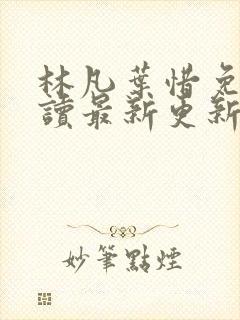 林凡葉惜免
讀最新更新
妙筆點煙